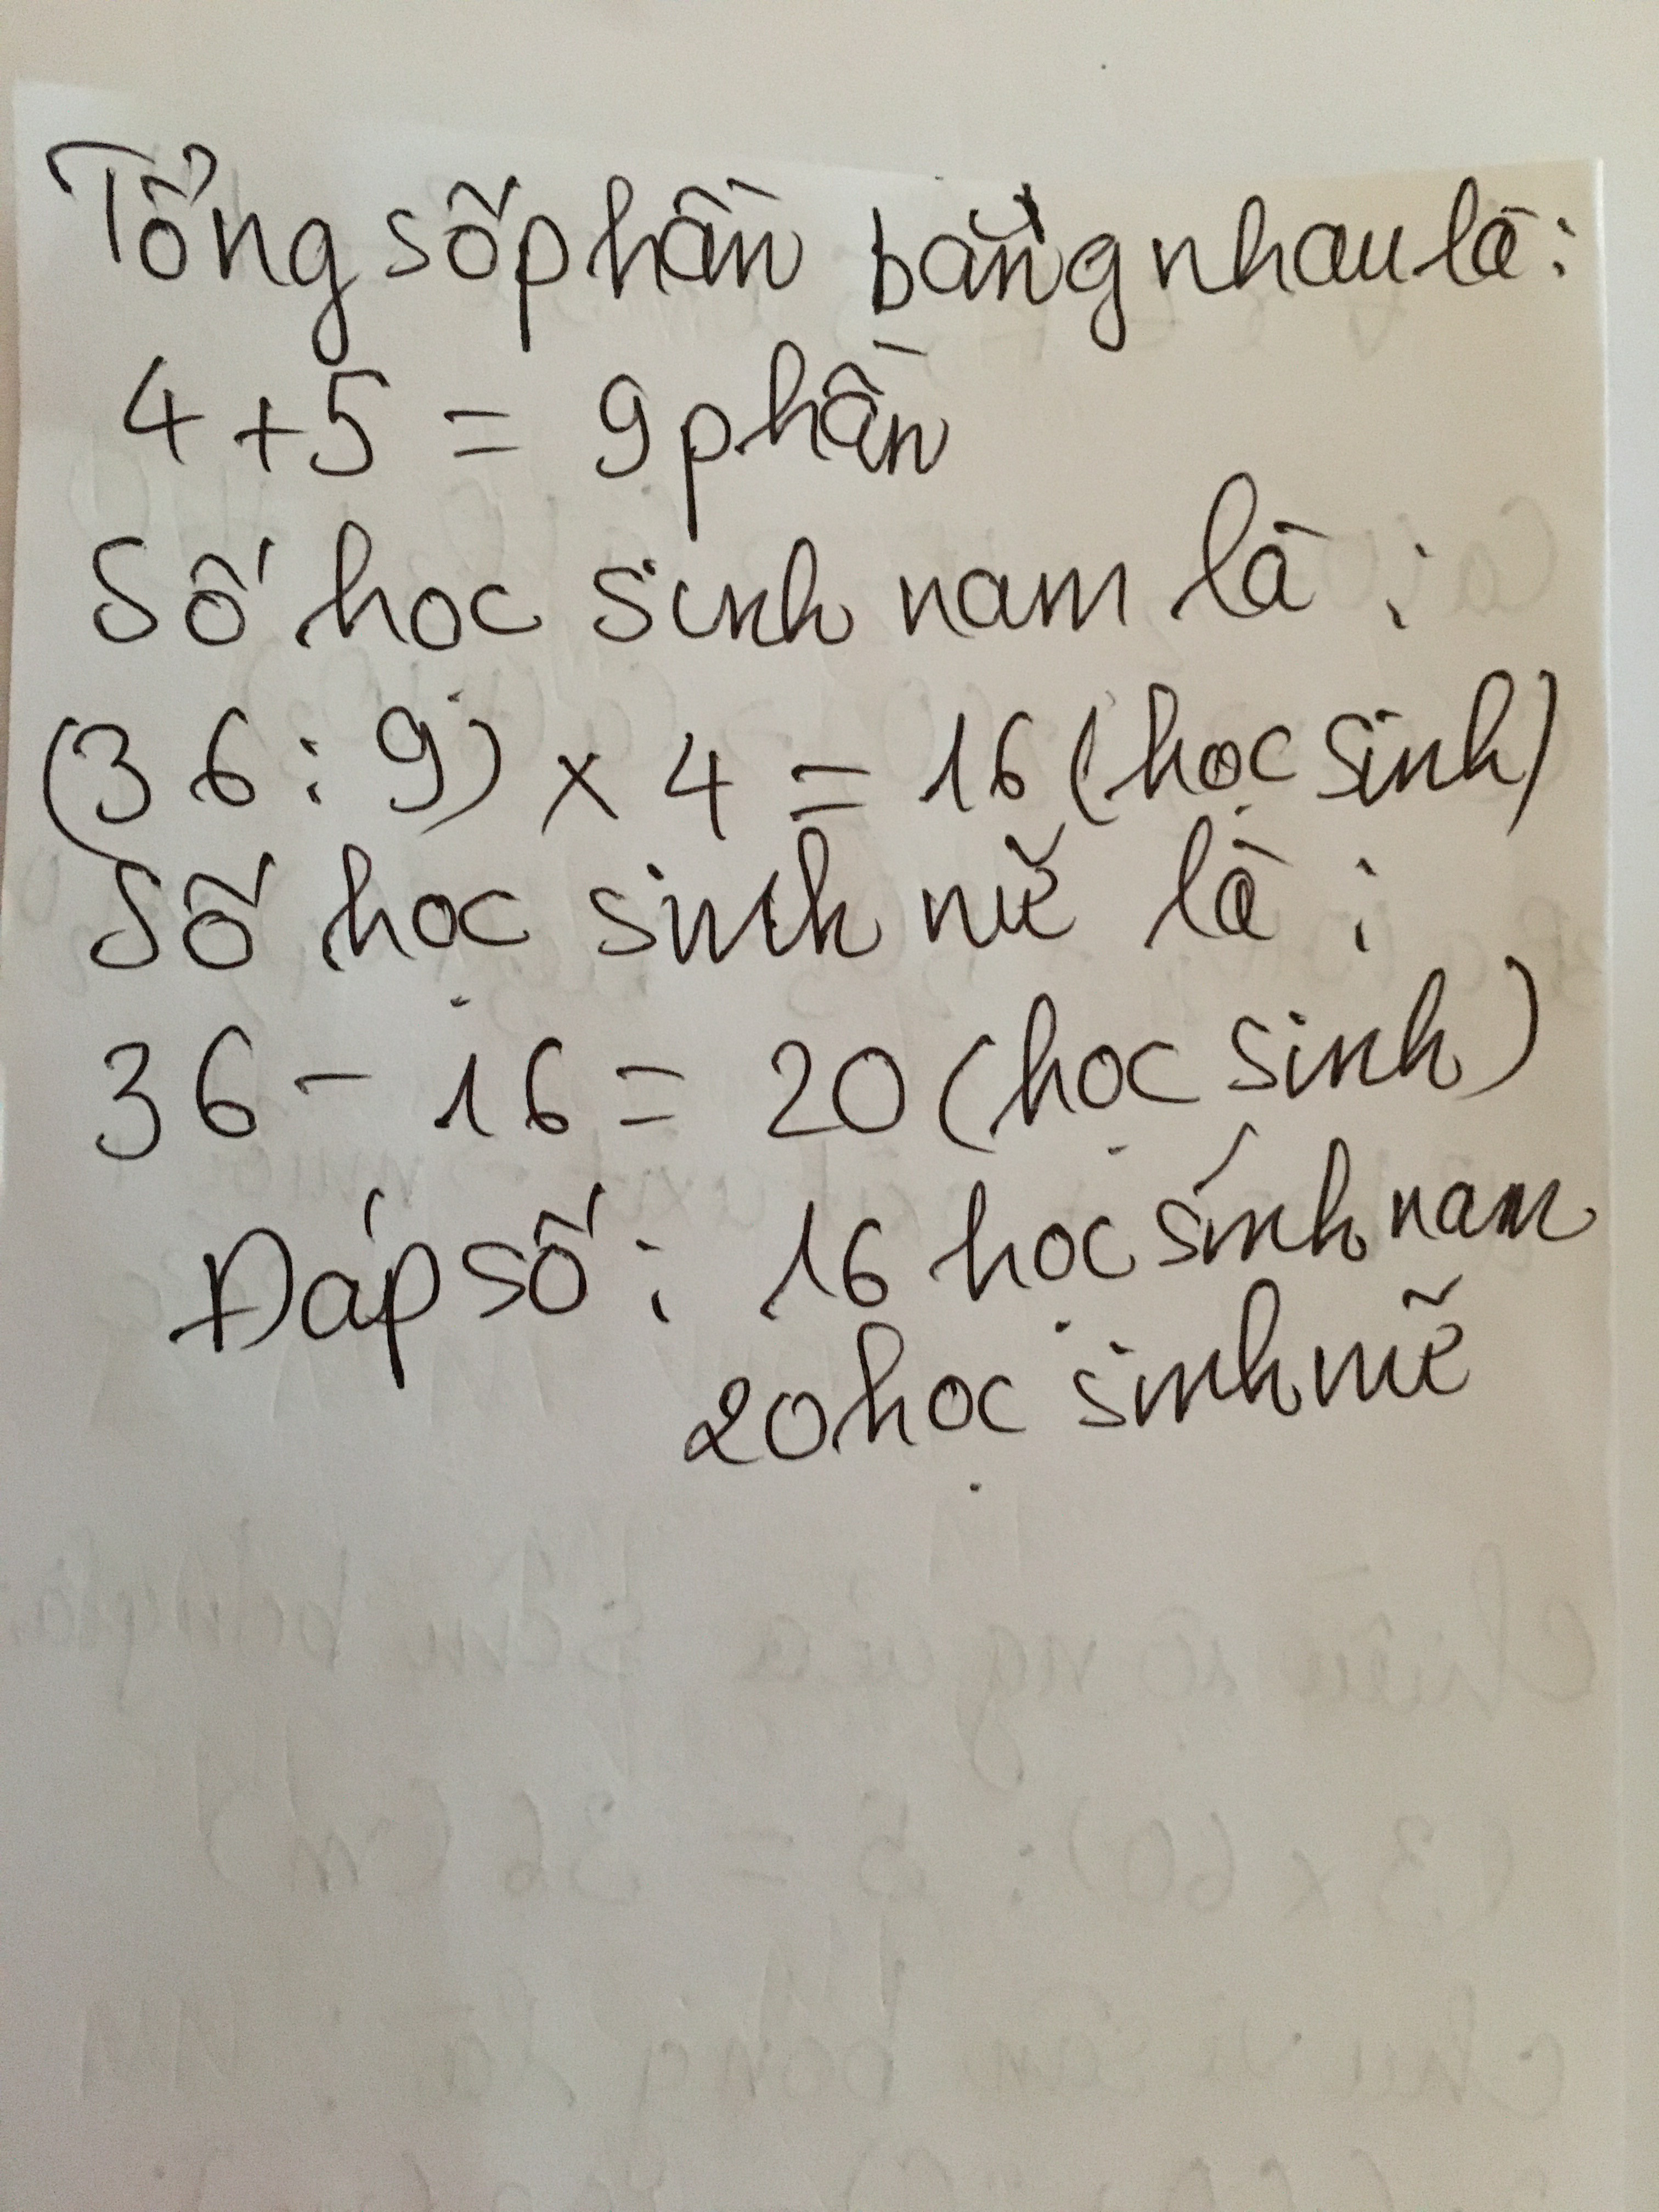 Tổng số phần bằng nhau là:
4 + 5 = 9 phần
Số học sinh nam là :
(36 : 9) x 4 = 16 (học sinh)
Số học sinh nữ là :
36 - 16 = 20 (học sinh)
Đáp số : 16 học sính nam
20 học sinh nữ